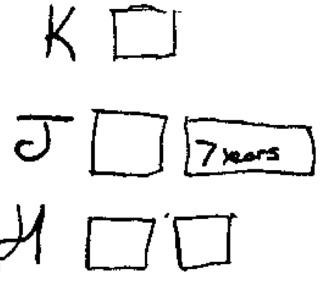 K
J 7 years
H